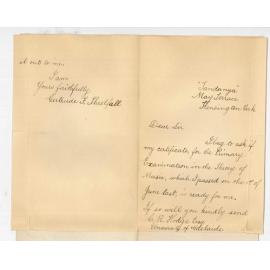 "Tandanya"
May Terrace
Kensington Park
Dear Sir
I beg to ask if
my certificate for the Primary
Examination in the Theory of
Music, which I passed in the 1st of
June last, is ready for me.
If so will you kindly send
C. R. Hodge Esq
University of Adelaide
it out to me.
I am
Yours faithfully
Gertrude F.